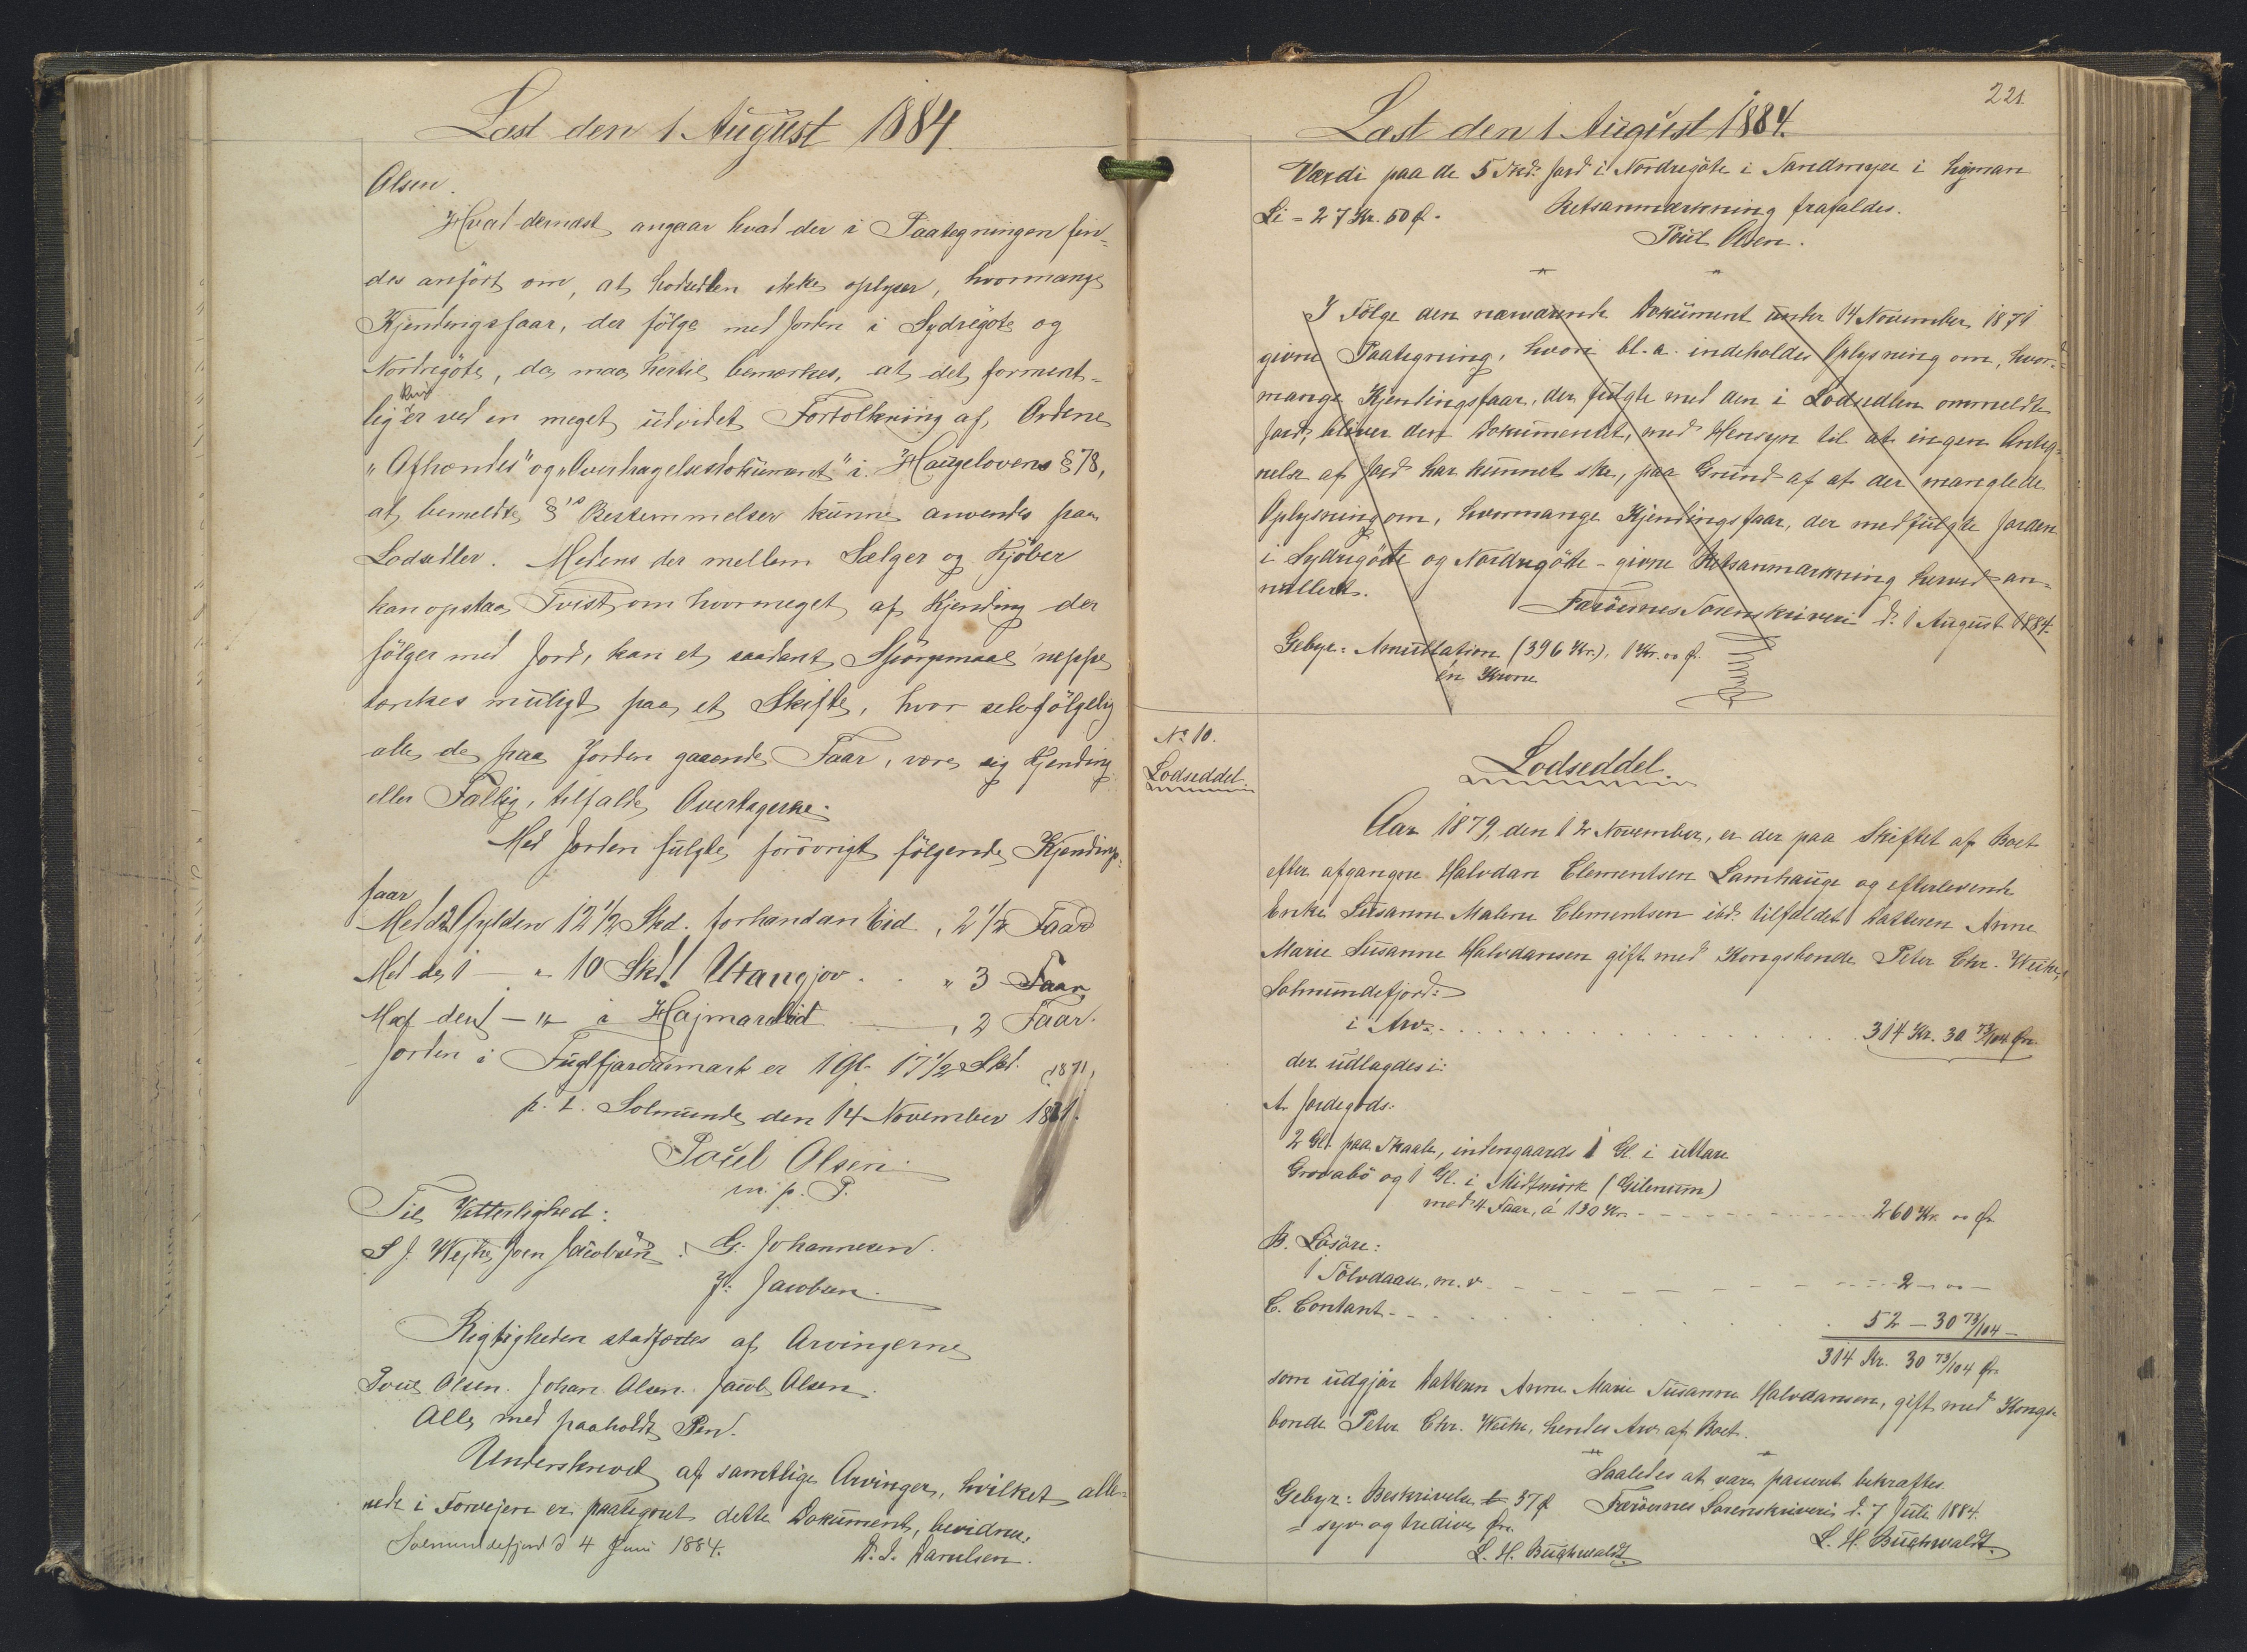 Læst den 1 August 1884.
Olsen.
Hvad dernæst angaar hvad der i Paategningen fin-
des anført om, at Lodsedlen ikke oplyser, hvormange
Kjendingsfaar, der følge med Jorden i Sydregøte og
Nordregøte, da maa hertil bemærkes, at det forment-
lig kun er ved en meget udvidet Fortolkning af Ordene
"Afhændes" og "Overdragelsesdokument" i Haugelovens § 78,
at bemeldte §'s Bestemmelser kunne anvendes paa
Lodsedler. Medens der mellem Sælger og Kjøber
kan opstaa Tvist om hvormeget af Kjending der
følger med Jord, kan et saadant Spørgsmaal neppe
tænkes muligt paa et Skifte, hvor selvfølgelig
alle de paa Jorden gaaende Faar, være sig Kjending
eller Fællig, tilfalde Overtagerne.
Med Jorden fulgte forøvrigt følgende Kjendings-
faar
Med 2 Gylden 12 1/2 Skd. forhandan Eid, 2 1/2 Faar
Med de 1 — " 10 Skd. Utangjov . . " 3 Faar
Med den 1 — " i Hajmarabid — , 2 Faar.
Jorden i Fuglfjardarmark er 1 Gl. 17 1/2 Skd. (1871)
p. t. Solmunde den 14 November 1871.
Poul Olsen
m. p. P.
Til Vitterlighed:
S J. Wejhe, Joen Jacobsen. G. Johannesen.
J. Jacobsen.
Rigtigheden stadfæstes af Arvingerne
Poul Olsen. Johan Olsen. Jacob Olsen.
Alle med paaholdt Pen.
Underskrevet af samtlige Arvinger, hvilket alle-
rede i Forvejen er paategnet dette Dokument, bevidnes.
Solmundefjord d 4 Juni 1884. D. J. Danielsen.
Læst den 1 August 1884.
221
Værdi paa de 5 Skd. Jord i Nordregøte i Sandmyre i
Li = 27 Kr. 50 Ø. Retsanmærkning frafaldes.
Poul Olsen.
I Følge den nærværende Dokument under 14 November 1871
givne Paategning, hvori bl. a. indeholdes Oplysning om, hvor-
mange Kjendingsfaar, der fulgte med den i Lodsedlen ommeldte
Jord, bliver den Dokumentet, med Hensyn til at ingen Anteg-
nelse af Jord har kunnet ske, paa Grund af at der manglede
Oplysning om, hvormange Kjendingsfaar, der medfulgte Jorden
i Sydregøte og Nordregøte - givne Retsanmærkning herved an-
nulleret.
Færøernes Sorenskriveri d. 1 August 1884.
Gebyr: Annullation (396 Kr.), 1 Kr. 00 Ø.
én Krone
No 10.
Lodseddel
Lodseddel.
Aar 1879, den 12 November, er der paa Skiftet af Boet
efter afgangne Halvdan Clementsen Lamhauge og efterlevende
Enke Susanne Malene Clementsen ibd. tilfaldet Datteren Anne
Marie Susanne Halvdansen gift med Kongsbonde Peter Chr. Weihe,
Solmundefjord:
i Arv . . . 314 Kr. 30 73/104 Øre
der udlagdes i:
A. Jordegods:
2 Gl. paa Skaale, indengaards 1 Gl. i uttare
Grovabø og 1 Gl. i Midmørk (Gilenum)
med 4 Faar, á 130 Kr. - - - 260 Kr. 00 Ø
B. Løsøre:
1 Sølvdaase, m. v. - - - 2 - 00 -
C. Contant - . . . 52 - 30 73/104 -
314 Kr. 30 73/104 Øre
som udgjør Datteren Anne Marie Susanne Halvdansen, gift med Kongs-
bonde Peter Chr. Weihe, hendes Arv af Boet.
Saaledes at være passeret bekræftes.
Gebyr: Beskrivelse 37 Ø Færøernes Sorenskriveri d. 7 Juli 1884.
= syv og tredive Øre.
L. H. Buchwaldt. L. H. Buchwaldt.